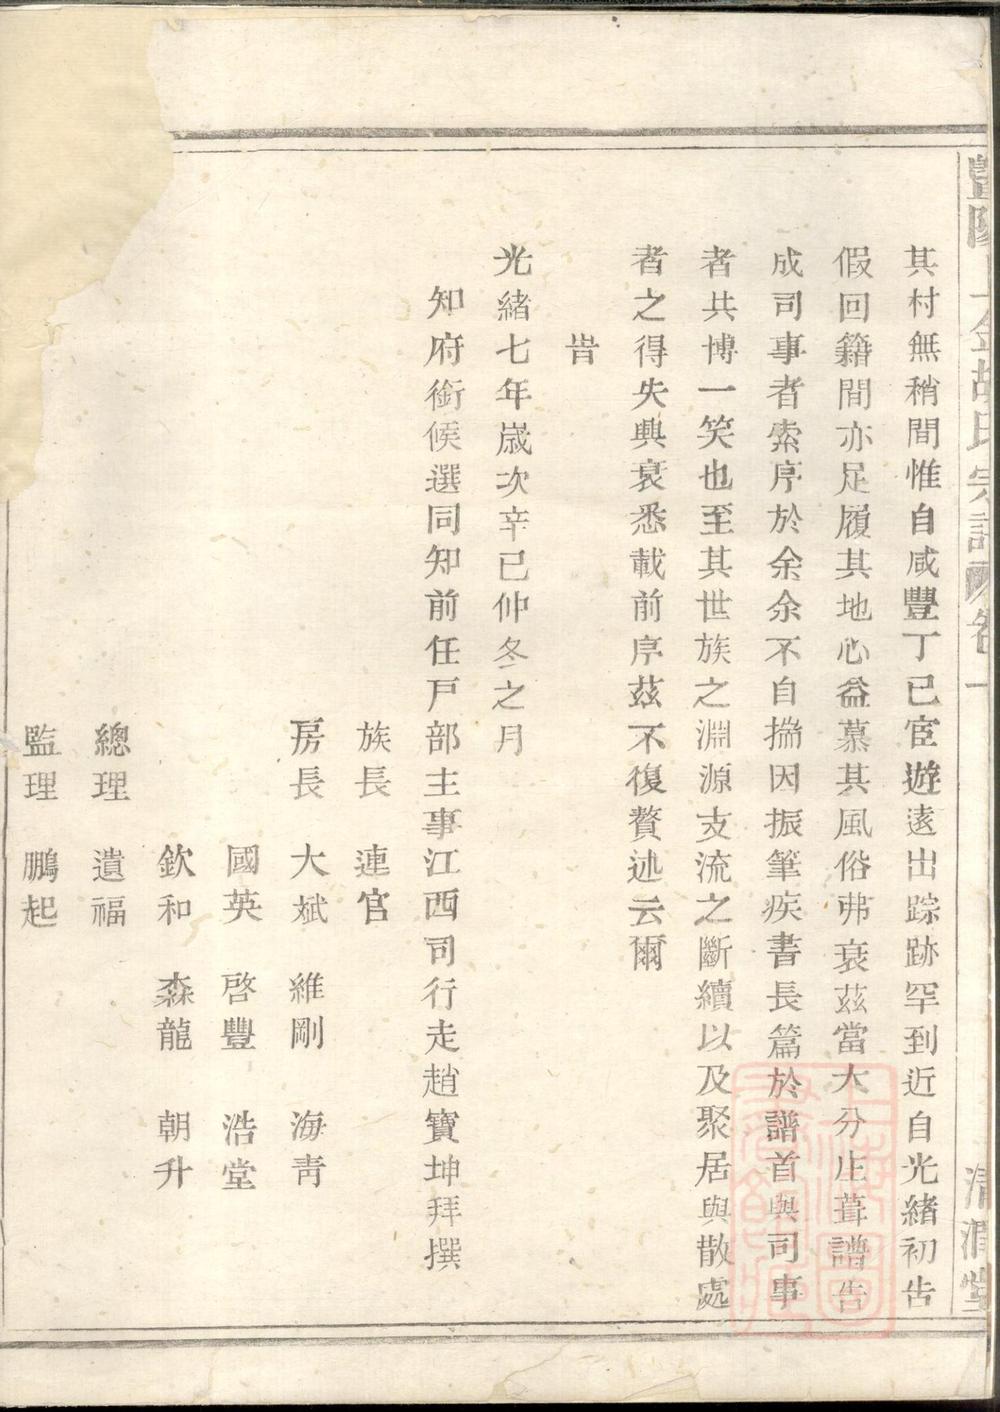 其村無稍間惟自咸豐丁巳宦遊遠出踪跡罕到近自光緒初告
假回籍間亦足履其地心益慕其風俗弗衰茲當大分庄葺譜告
成司事者索序於余余不自揣因振筆疾書長篇於譜首與司事
者共博一笑也至其世族之淵源支流之斷續以及聚居與散處
者之得失興衰悉載前序茲不復贅述云爾
旹
光緒七年歲次辛巳仲冬之月
知府銜候選同知前任戸部主事江西司行走趙寶坤拜撰
族長 連官
房長 大斌 維剛 海靑
國英 啓豐 浩堂
欽和 森龍 朝升
總理 遺福
監理 鵬起